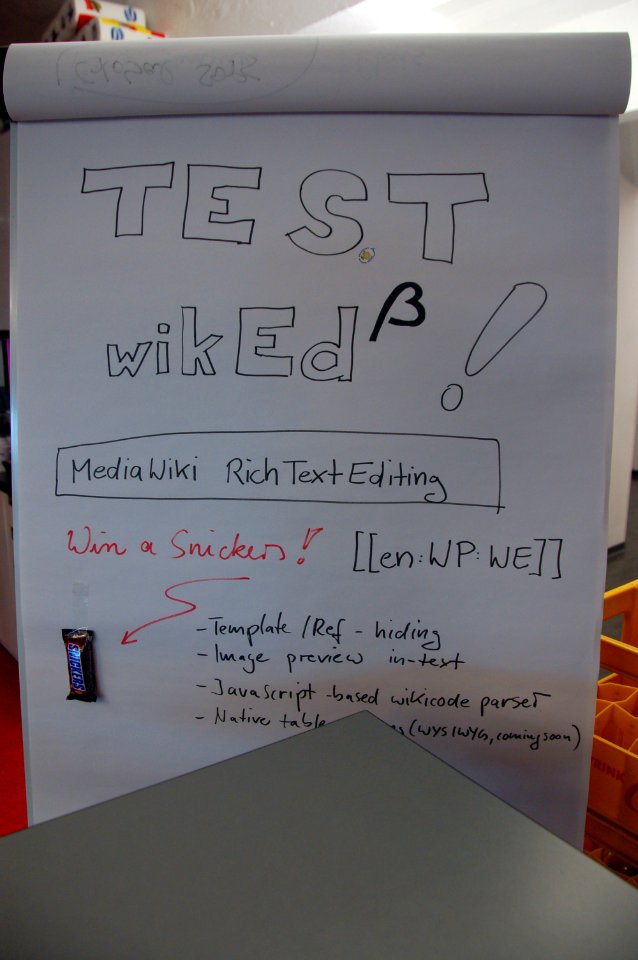 TEST
wikEd β !
MediaWiki RichTextEditing
Win a Snickers! [[en:WP:WE]]
SNICKERS
- Template/Ref - hiding
- Image preview in-text
- Javascript-based wikicode parser
- Native (WYSIWYG, coming soon)